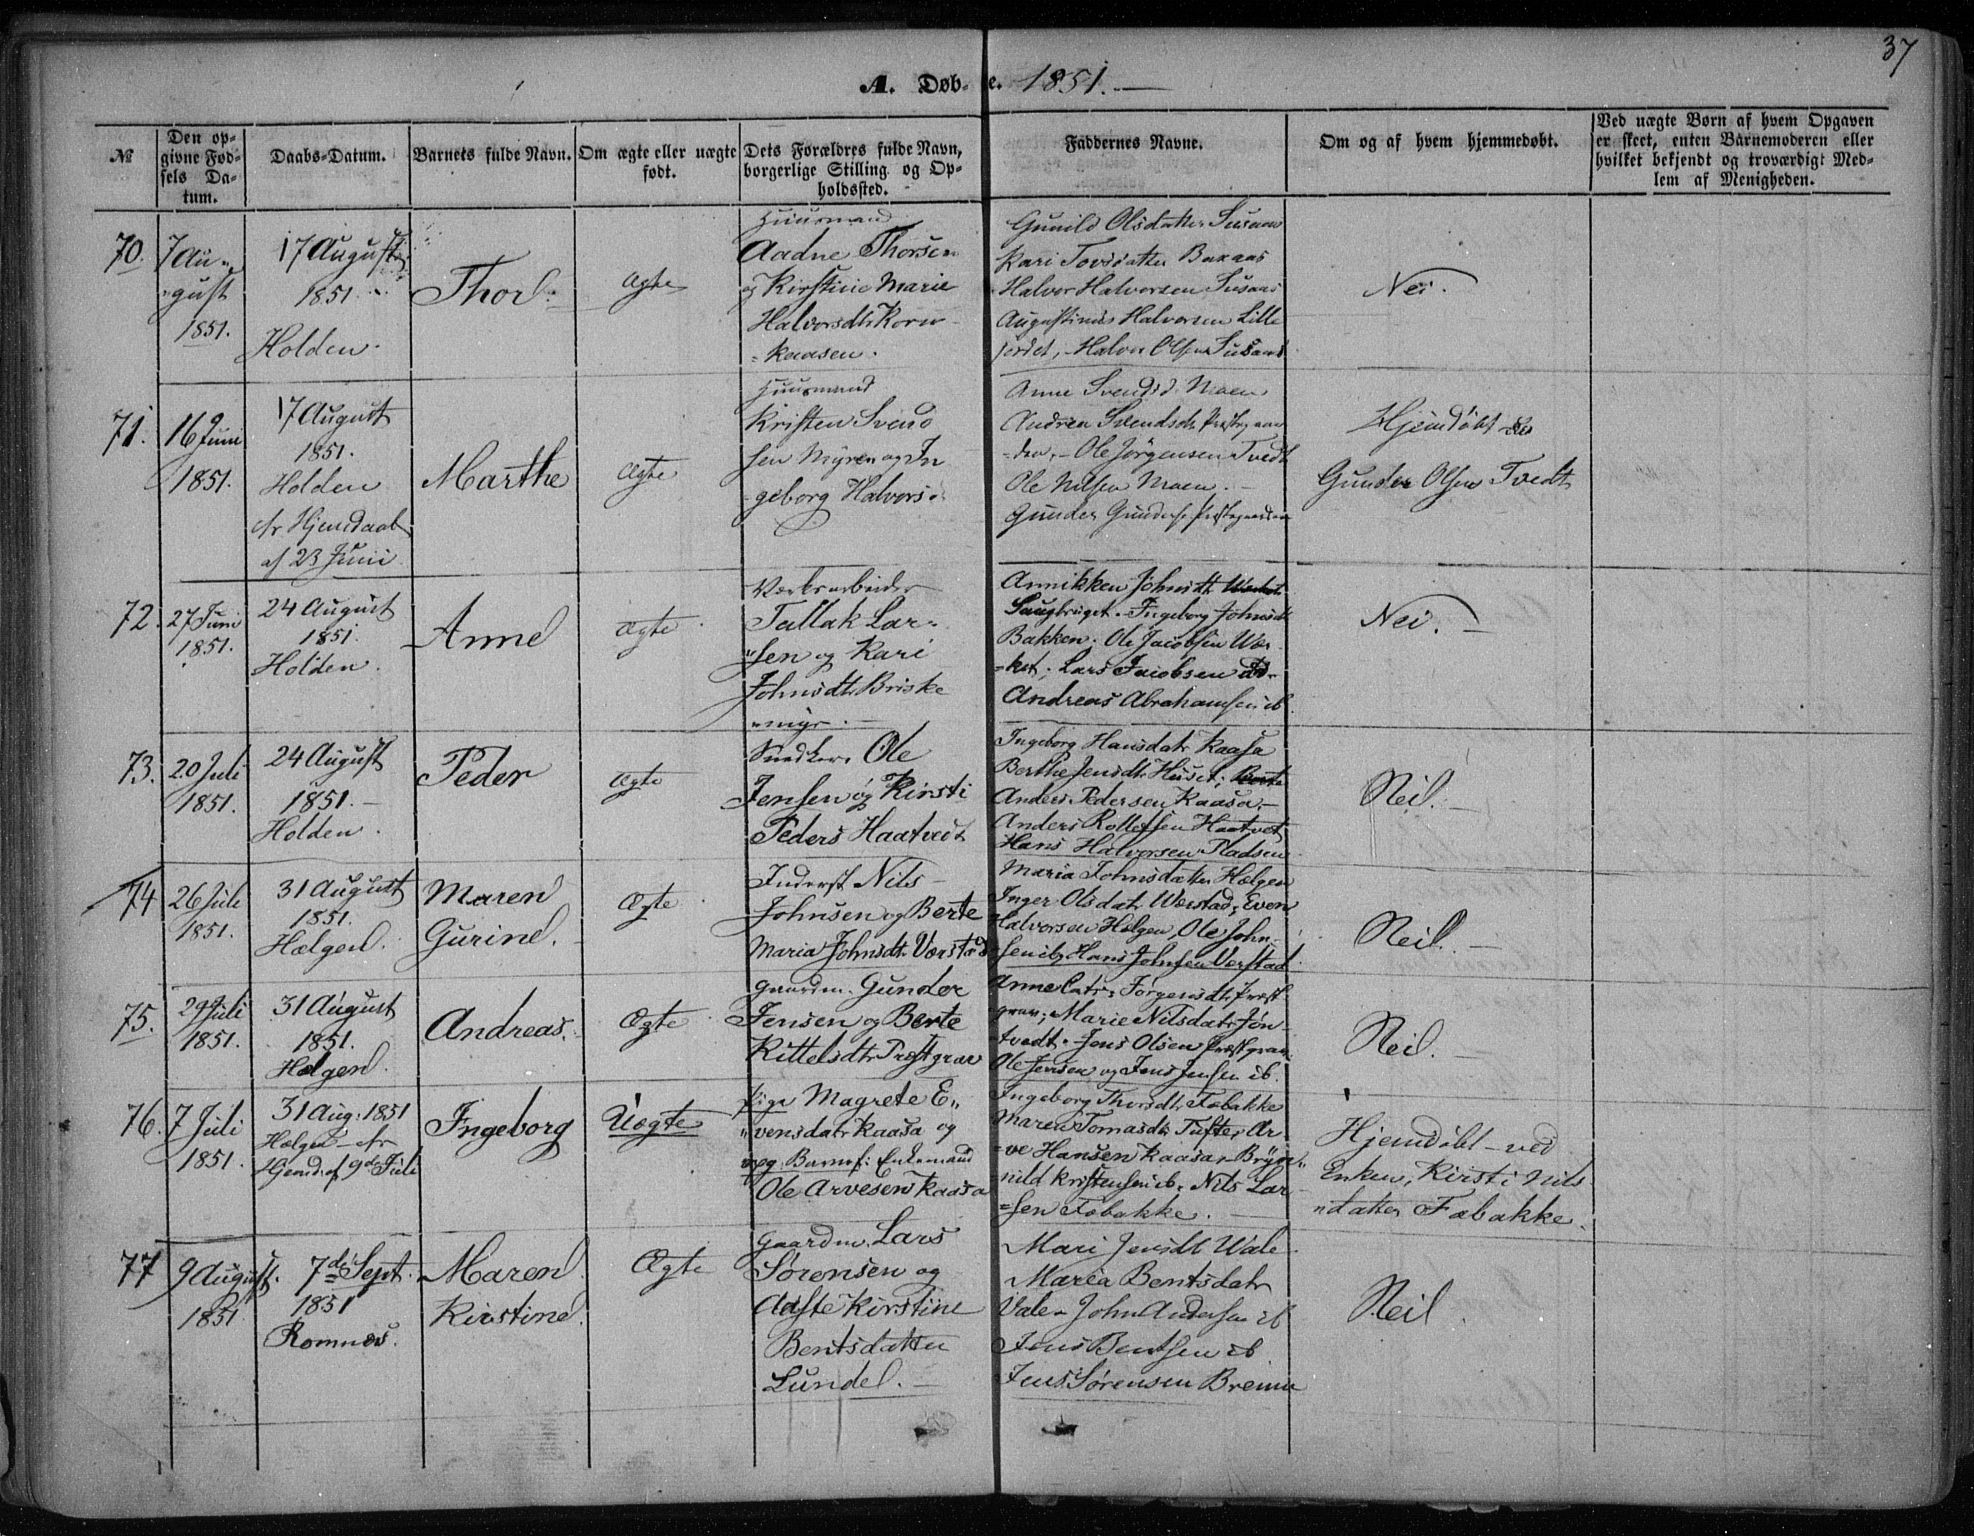 37
A. Døb- e. 1851. —
№
Den op-
givne Fød-
sels Da-
tum.
Daabs-Datum.
Barnets fulde Navn.
Om ægte eller uægte
født.
Dets Forældres fulde Navn,
borgerlige Stilling og Op-
holdssted.
Faddernes Navne.
Om og af hvem hjemmedøbt.
Ved uægte Børn af hvem Opgaven
er skeet, enten Barnemoderen eller
hvilket bekjendt og troværdigt Med-
lem af Menigheden.
70.
7 Au-
gust
1851.
17 August
1851.
Holden.
Thor
Ægte
Huusmand
Aadne Thorsen
og Kirstine Marie
Halvorsdtr Korn-
kaasen.
Gunild Olsdatter Susaas
Kari Tovsdatter Baxaas
Halvor Halvorsen Susaas
Augustinus Halvorsen Lille
jordet, Halvor Olsen Susaas
Nei.
71.
16 Juni
1851.
17 August
1851.
Holden
Hjemdaab
af 23 Juni
Marthe
Ægte
Huusmand
Kristen Svend
sen Myren og In
geborg Halvorsd
Anne Svendsd. Moen
Andrea Svendsdtr Præstegaar
den, Ole Jörgensen Tvedt
Ole Nilsen Moen.
Gunder Gunders. Præstegaarden
Hjemdöbt
Gunder Olsen Tvedt
72.
27 Juni
1851.
24 August
1851.
Holden.
Anne
Ægte
Værksarbeider
Tallak Lar-
sen og Kari
Johnsdtr Briske
myr.
Annikken Johnsdtr
Saugbruget. Ingeborg Johnsdtr
Bakken. Ole Jacobsen Vær-
ket, Lars Jacobsen
Andreas Abrahamsen ib.
Nei. —
73.
20 Juli
1851.
24 August
1851. —
Holden.
Peder
Ægte
Snedker Ole
Jensen og Kirsti
Peders Haatvedt
Ingeborg Hansdatr Kaasa
Berthe Jensdtr Huset,
Anders Pedersen Kaasa, —
Anders Rollefsen Haatvet
Hans Halvorsen Pladsen
Neil. —
74
26 Juli
1851.
31 August
1851.
Hælgen.
Maren
Gurine.
Ægte
Inderst Nils
Johnsen og Berte
Maria Johnsdtr Værstad
Maria Johnsdatter Hælgen
Inger Olsdatr Værstad, Even
Halvorsen Hælgen, Ole John-
sen ib, Hans Johnsen Værstad.
Neil. —
75.
29 Juli
1851.
31 August
1851.
Hælgen.
Andreas.
Ægte
Gaardm. Gunder
Jensen og Berte
Kittelsdtr Præstgrav
Anne Catr. Jörgensdtr Præst
grav, Marie Nilsdatr Jøn-
tvedt. Jens Olsen Præstgrav
Ole Jensen og Jens Jensen ib.
Neil. —
76.
7 Juli
1851.
31 Aug: 1851
Hælgen
Hjemd. af 9de Juli
Ingeborg
Uægte
Pige Magrete E-
vensdatr Kaasa og
Barnef: Enkemand
Ole Arvesen Kaasa
Ingeborg Thorsdtr Fæbakke
Maren Tomasdtr Tufte, Ar
ve Hansen Kaasa, Bryn-
nild Kristensen ib. Nils Lar
sen Fæbakke. —
Hjemdöbt — ved
Enken, Kirsti Nils
datter Fæbakke.
77
9 August.
1851.
7de Sept.
1851
Romnes.
Maren
Kirstine.
Ægte
Gaardm. Lars
Sørensen og
Aaste Kirstine
Bentsdatter
Lunde. —
Mari Jensdtr Vale
Maria Bentsdatr
Vale. John Andersen ib
Jens Bentsen ib
Jens Sørensen Brenna
Neil